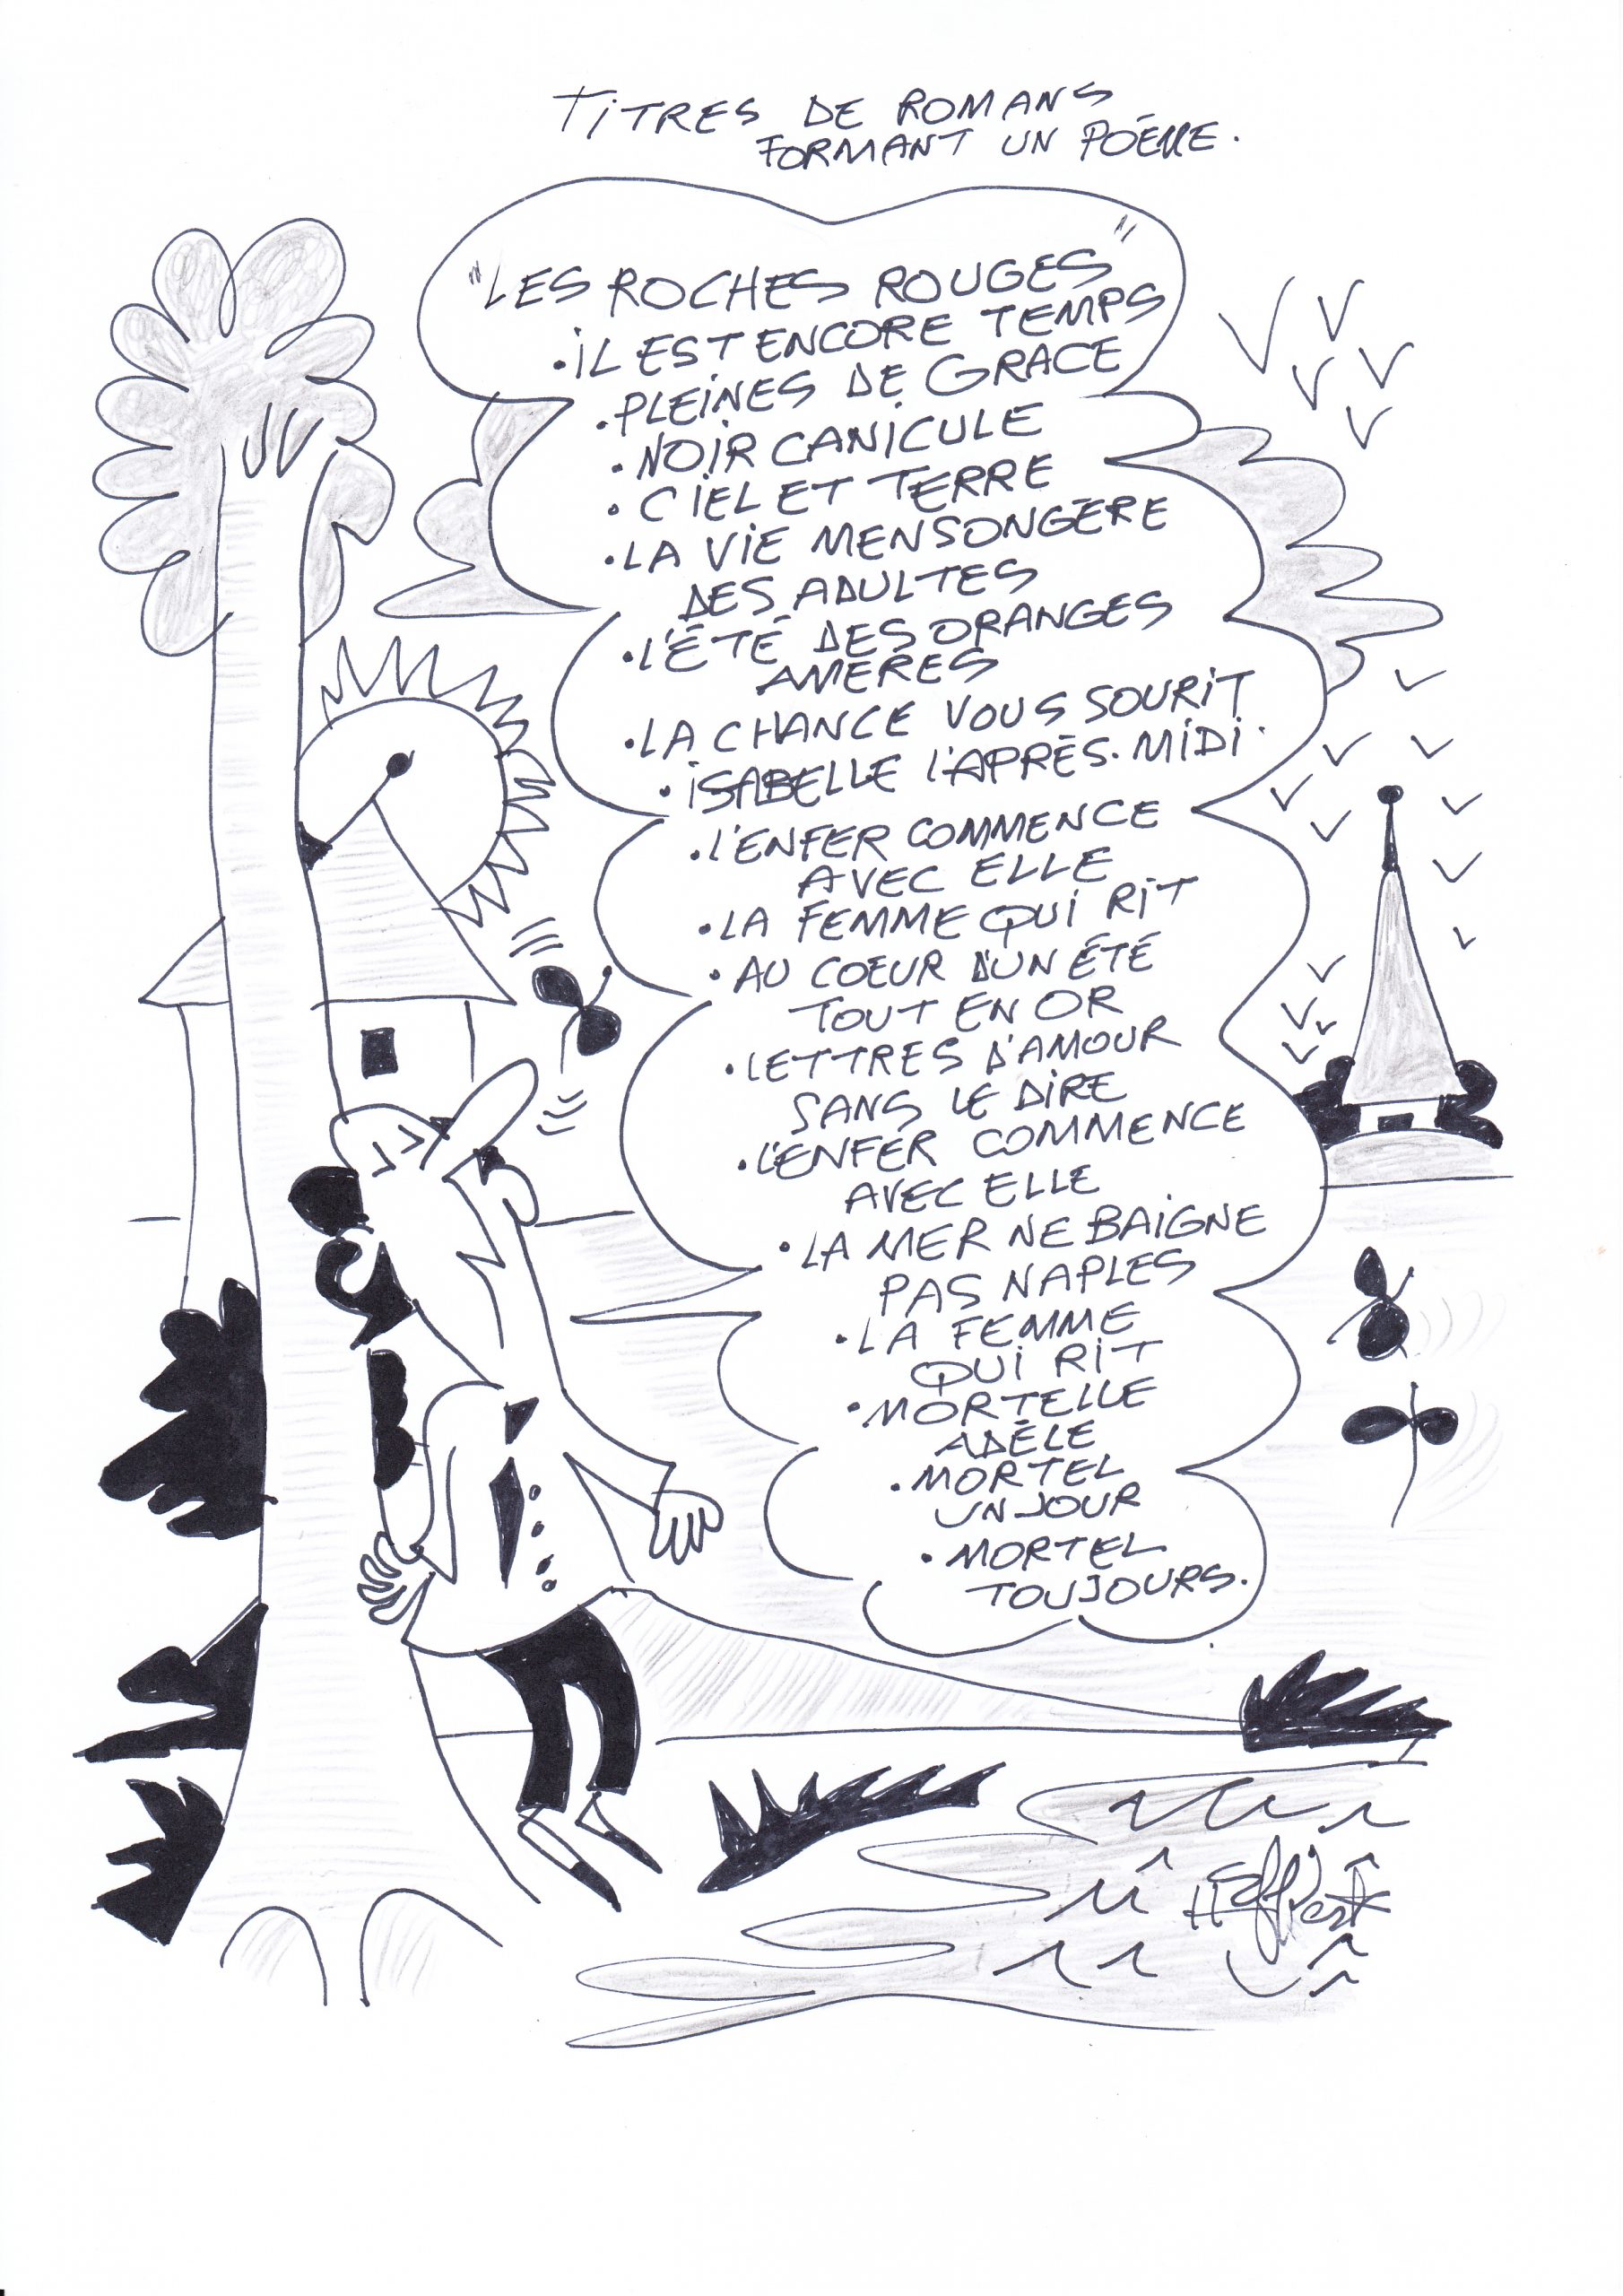 TITRES DE ROMANS
FORMANT UN POÉME.
"LES ROCHES ROUGES"
•IL EST ENCORE TEMPS
•PLEINES DE GRACE
•NOIR CANICULE
•CIEL ET TERRE
•LA VIE MENSONGÈRE
DES ADULTES
•L'ÉTÉ DES ORANGES
AMERES
•LA CHANCE VOUS SOURIT
•ISABELLE L'APRÈS.MIDI.
•L'ENFER COMMENCE
AVEC ELLE
•LA FEMME QUI RIT
•AU COEUR D'UN ÉTÉ
TOUT EN OR
•LETTRES D'AMOUR
SANS LE DIRE
•L'ENFER COMMENCE
AVEC ELLE
•LA MER NE BAIGNE
PAS NAPLES
•LA FEMME
QUI RIT
•MORTELLE
ADÈLE
•MORTEL
UN JOUR
•MORTEL
TOUJOURS.